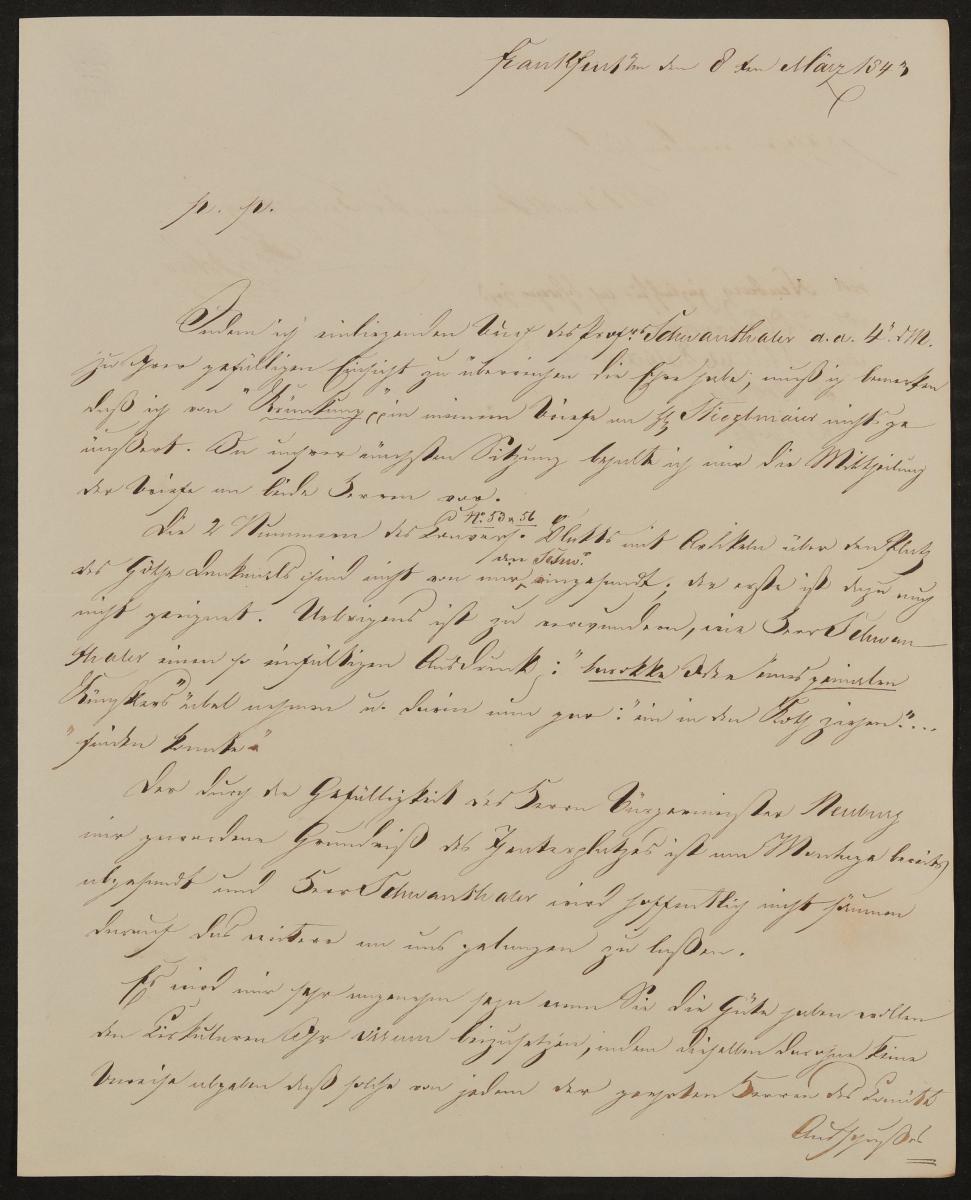 Frankfurt a/m den 8ten März 1843
p. p.
Indem ich einliegenden Brief des Profrs Schwanthaler d. d. 4" d M.
zu Ihrer gefälligen Einsicht zu überreichen die Ehre habe, muß ich bemerken
daß ich von "Kränkung" in meinem Briefe an H. Stieglmaier nichts ge
äußert. In unsrer nächsten Sitzung behalte ich mir die Mittheilung
der Briefe an beide Herren vor.
Die 2 Nummern des Convers. Blatts mit Artikeln über den Platz
No 53 u 56
des Göthe Denkmals sind nicht von mir eingesandt; der erste ist dazu auch
an Schw.
nicht geeignet. Uebrigens ist zu verwundern, wie Herr Schwan
thaler einen so einfältigen Ausdruck: "barokke Idee eines genialen
Künstlers" übel nehmen u. darin nun gar: "ein in den Koth ziehen"...
"finden konnte"
Der durch die Gefälligkeit des Herrn Bürgermeister Neuburg
mir gewordene Grundriß des Theaterplatzes ist am Montage bereits
abgesandt und Herr Schwanthaler wird hoffentlich nicht säumen
darauf das weitere an uns gelangen zu laßen.
Es wird mir sehr angenehm seyn wenn Sie die Güte haben wollen
den Cirkularen Ihr visum beizusetzen, indem dieselben darohne keine
Beweise abgeben daß solche von jedem der geehrten Herren des Comité
Ausschußes